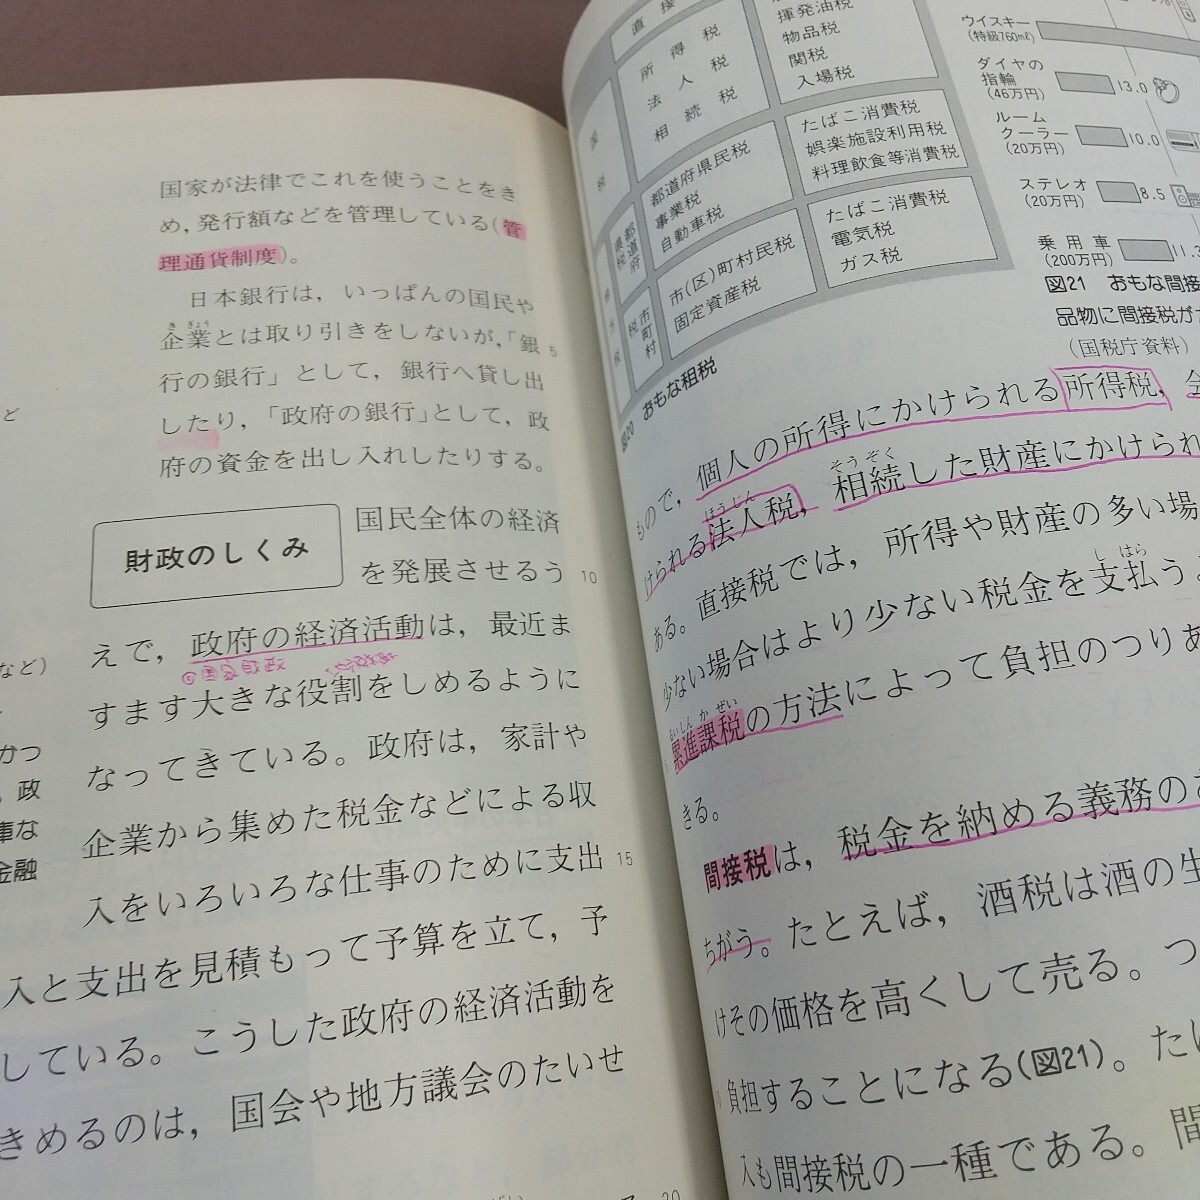 国家が法律でこれを使うことをき
め，発行額などを管理している(管
理通貨制度)。
日本銀行は，いっぱんの国民や
企業とは取り引きをしないが，「銀
き ぎょう
5
行の銀行」として，銀行へ貸し出
したり，「政府の銀行」として，政
府の資金を出し入れしたりする。
財政のしくみ
国民全体の経済
を発展させるう
10
えで，政府の経済活動は，最近ま
すます大きな役割をしめるように
なってきている。政府は，家計や
企業から集めた税金などによる収
入をいろいろな仕事のために支出
15
入と支出を見積もって予算を立て，予
している。こうした政府の経済活動を
きめるのは，国会や地方議会のたいせ
20
ど
など)
かつ
政
庫な
金融
直接
所得税
法人税
相続税
揮発油税
物品税
関税
入場税
都道府県税
都道府県民税
事業税
自動車税
たばこ消費税
娯楽施設利用税
料理飲食等消費税
市町村税
市(区)町村民税
固定資産税
たばこ消費税
電気税
ガス税
図20 おもな租税
ウイスキー
(特級760mℓ)
ダイヤの
指輪
(46万円)
13.0
ルーム
クーラー
(20万円)
10.0
ステレオ
(20万円)
8.5
乗用車
(200万円)
11.3
図21 おもな間接
品物に間接税が
(国税庁資料)
個人の所得にかけられる所得税，
もので，相続した財産にかけられ
そう ぞく
けられる法人税，
ほうじん
ある。直接税では，所得や財産の多い場
少ない場合はより少ない税金を支払う。
し はら
累進課税の方法によって負担のつりあ
るいしん か ぜい
きる。
間接税は，税金を納める義務のあ
ちがう。たとえば，酒税は酒の生
けその価格を高くして売る。つ
負担することになる(図21)。た
入も間接税の一種である。間